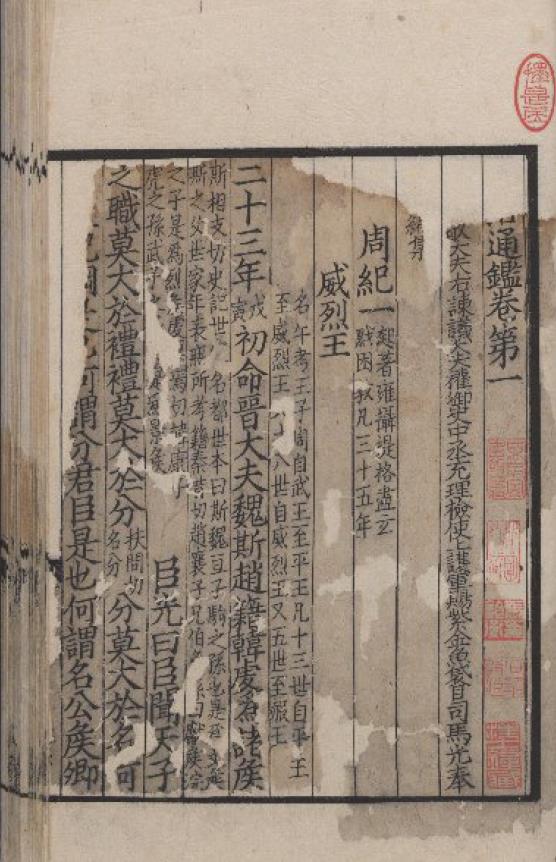 通鑑卷第一
大夫右諫議大夫權御史中丞充理檢使上護軍賜紫金魚袋臣司馬光奉
編集
周紀一 起著雍攝提格盡玄
黓困敦凡三十五年
威烈王
名午考王子周自武王至平王凡十三世自平王
至威烈王十八世自威烈王又五世至赧王
二十三年 戊寅 初命晉大夫魏斯趙籍韓虔為諸矦
斯相支切史記世 名都世本曰斯魏亘子駒之孫也是爲文矦
斯之父世家年表無所考籍秦昔切趙襄子兄伯 孫曰 矦宗
之子是爲烈矦虔 焉切諱康子
虎之孫武子之 是爲景矦
臣光曰臣聞天子
之職莫大於禮禮莫大於分 扶問切 名分 分莫大於名何
紀綱是也何謂分君臣是也何謂名公矦卿